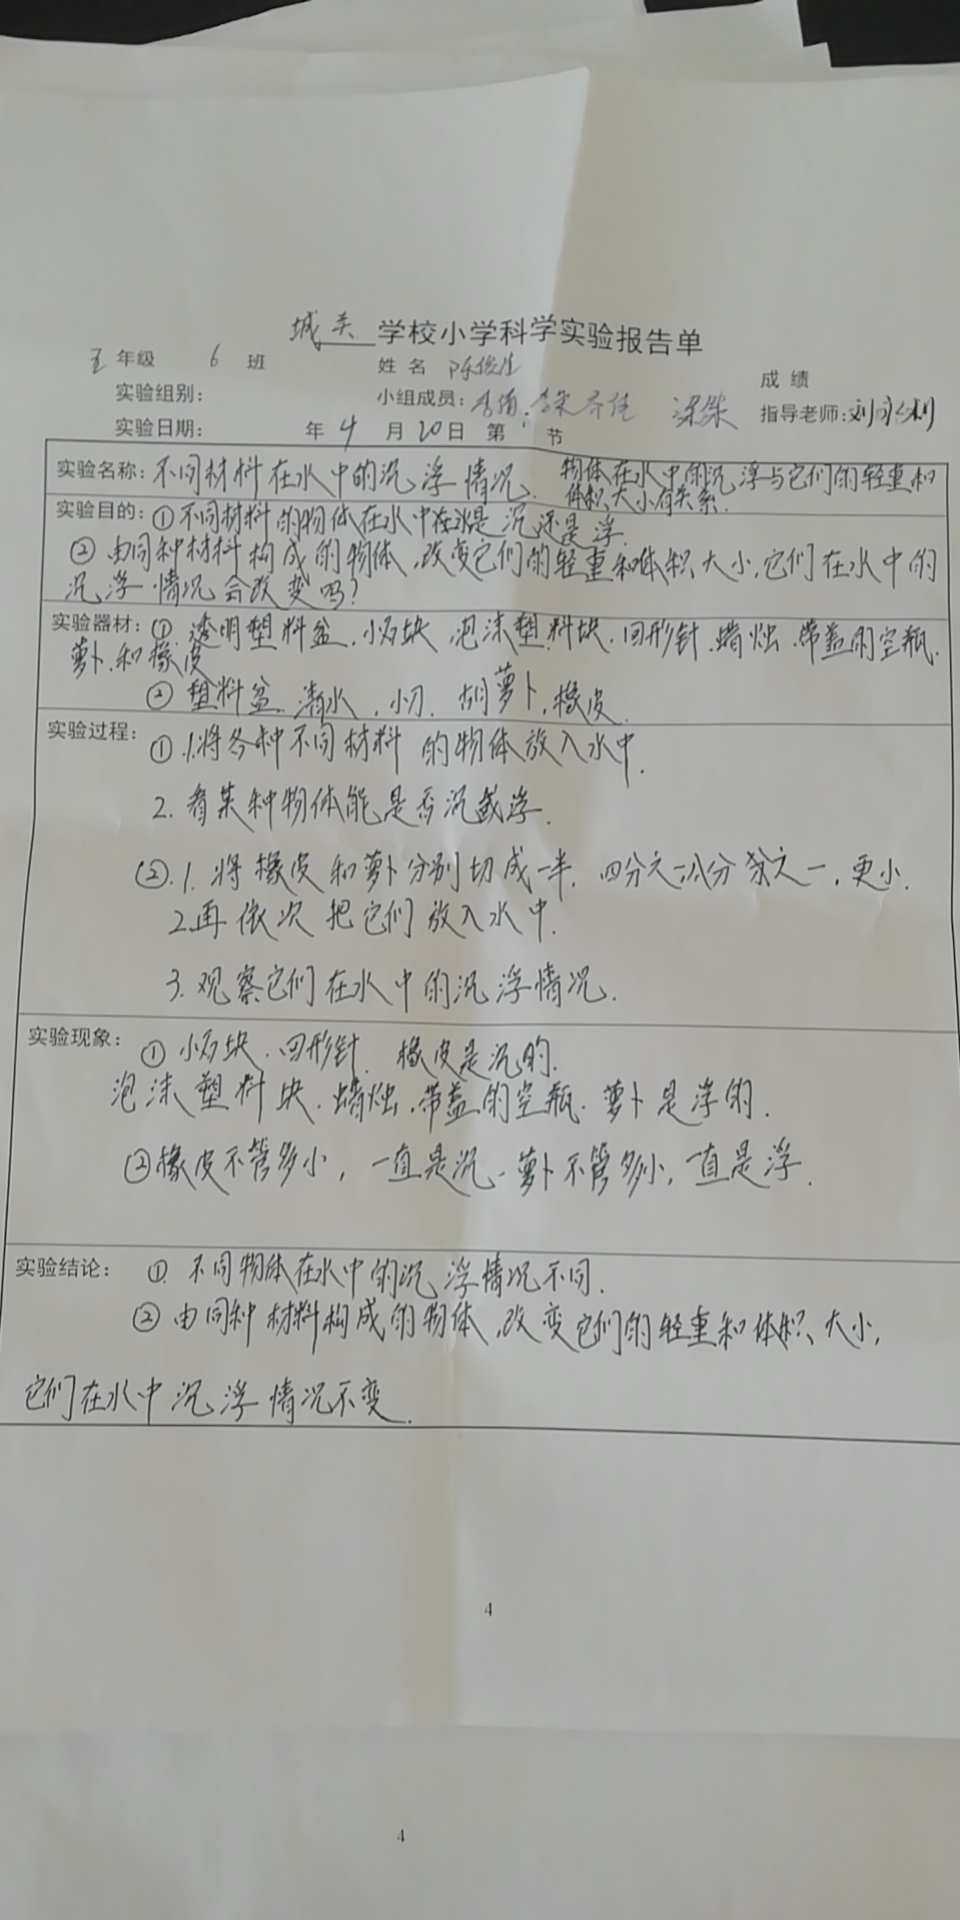 城关学校小学科学实验报告单
五年级 6 班 姓名 陈俊 成绩
实验组别： 小组成员： 指导老师：刘
实验日期： 年 4 月 20 日 第 节
实验名称：不同材料在水中的沉浮情况. 物体在水中的沉浮与它们的轻重和
体积、大小有关系.
实验目的：①不同材料的物体在水中是沉还是浮.
②由同种材料构成的物体,改变它们的轻重和体积、大小,它们在水中的
沉浮情况会改变吗?
实验器材：①透明塑料盆、小石块、泡沫塑料块、回形针、蜡烛、带盖的空瓶、
萝卜、和橡皮
②塑料盆、清水、小刀、胡萝卜,橡皮.
实验过程：①1.将各种不同材料的物体放入水中.
2.看某种物体能是否沉或浮.
②.1.将橡皮和萝卜分别切成一半.四分之一八分之一,更小.
2.再依次把它们放入水中.
3.观察它们在水中的沉浮情况.
实验现象：①小石块、回形针、橡皮是沉的.
泡沫塑料块、蜡烛、带盖的空瓶、萝卜是浮的.
②橡皮不管多小,一直是沉.萝卜不管多小,一直是浮.
实验结论：①.不同物体在水中的沉浮情况不同.
②由同种材料构成的物体,改变它们的轻重和体积、大小,
它们在水中沉浮情况不变.
4
4